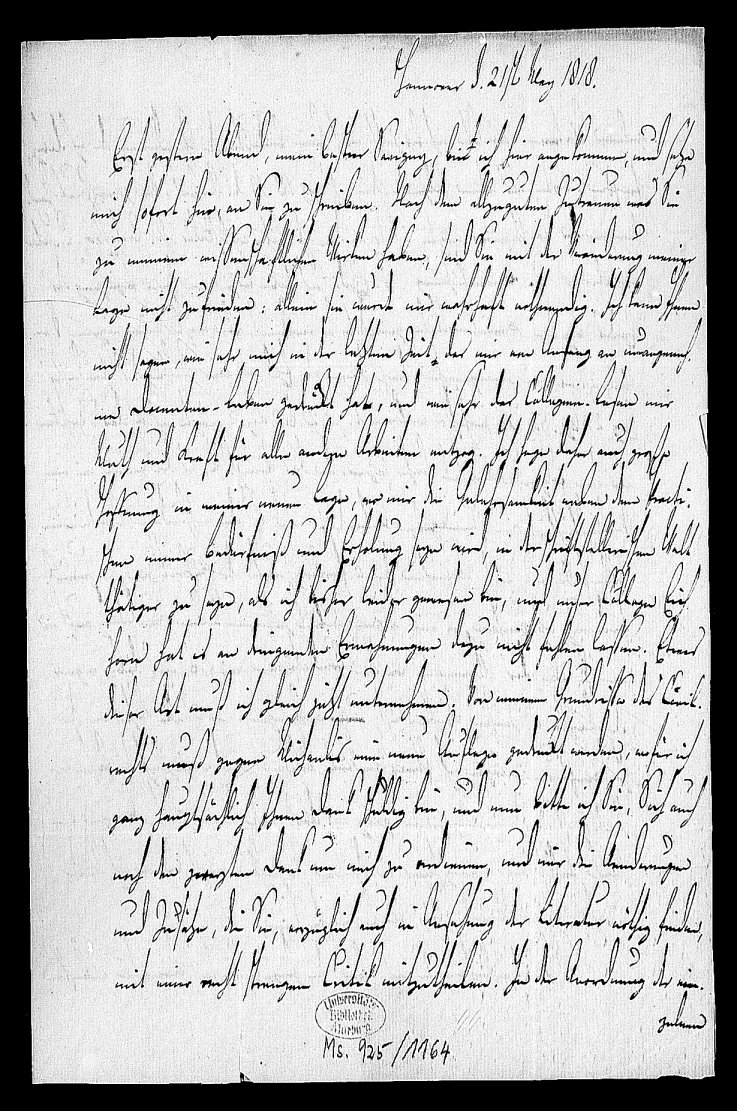 Hannover d. 21st May 1818.
Erst gestern Abend, mein bester Savigny, bin ich hier angekommen, und setze
mich sofort hin, an Sie zu schreiben. Nach dem allzuguten Zutrauen was Sie
zu meinem wissenschaftlichen Wirken haben, sind Sie mit der Veränderung meiner
Lage nicht zufrieden: allein sie wurde mir wahrhaft nothwendig. Ich kann Ihnen
nicht sagen, wie sehr mich in der letzten Zeit das mir von Anfang an unangeneh-
me Docenten-Leben gedrückt hat, und wie sehr das Collegien-lesen mir
Muth und Kraft für alle andere Arbeiten entzog. Ich hege daher auch große
Hoffnung in meiner neuen Lage, wo mir die Gelehrsamkeit neben dem Practi-
schen immer Bedürfniß und Erholung seyn wird, in der schriftstellerischen Welt
thätiger zu seyn, als ich bisher leider gewesen bin, und unser College Eich
horn hat es an dringenden Ermahnungen dazu nicht fehlen lassen. Etwas
dieser Art muß ich gleich jetzt unternehmen. Von meinem Grundrisse des Civil-
rechts muß gegen Michaelis eine neue Auflage gedruckt werden, wofür ich
ganz hauptsächlich Ihnen Dank schuldig bin, und nun bitte ich Sie, Sich auch
noch den Dank um mich zu verdienen, und mir die Aenderungen
und Zusätze, die Sie, vorzüglich auch in Ansehung der Literatur nöthig finden,
mit einer recht strengen Critik mitzutheilen. In der Anordnung der ein-
zelnen
Universitäts
Bibliothek
Marburg
Ms. 925/1164